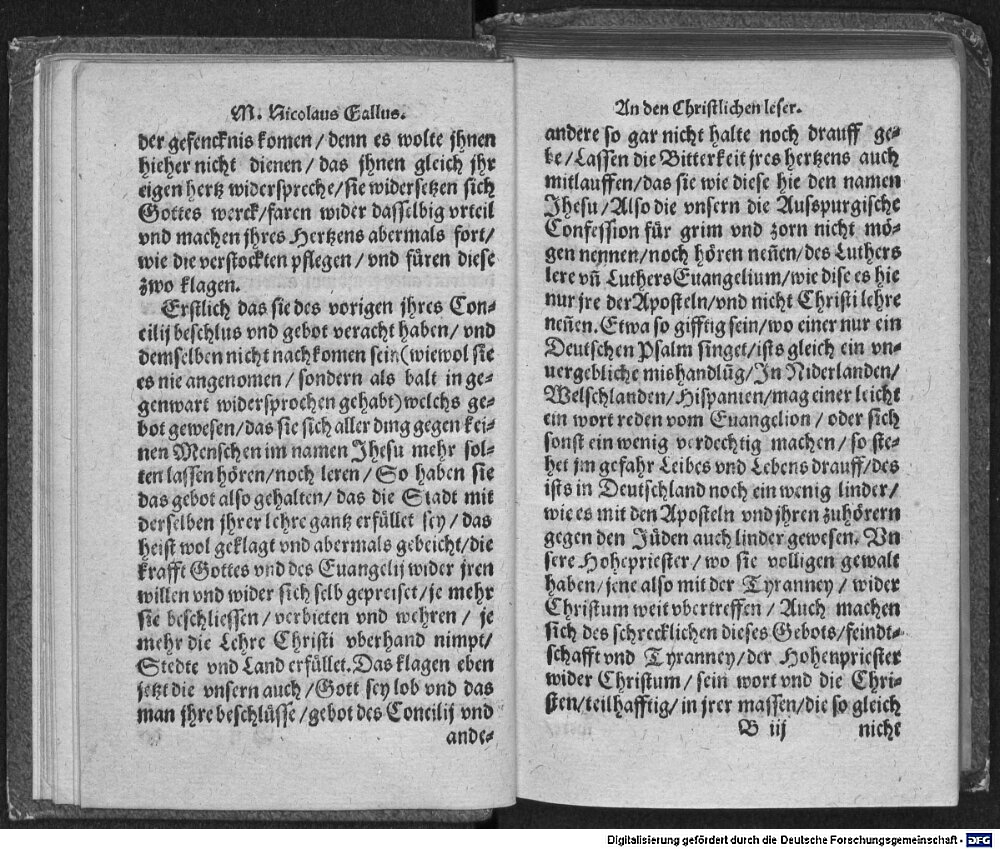 M. Nicolaus Gallus.
der gefencknis komen / denn es wolte jhnen
hieher nicht dienen / das jhnen gleich jhr
eigen hertz widerspreche / sie widersetzen sich
Gottes werck / faren wider dasselbig vrteil
vnd machen jhres Hertzens abermals fort /
wie die verstockten pflegen / vnd füren diese
zwo klagen.
Erstlich das sie des vorigen jhres Con-
cilij beschlus vnd gebot veracht haben / vnd
demselben nicht nachkomen sein (wiewol sie
es nie angenomen / sondern als balt in ge-
genwart widersprochen gehabt) welchs ge-
bot gewesen / das sie sich aller ding gegen kei-
nen Menschen im namen Jhesu mehr sol-
ten lassen hören / noch leren / So haben sie
das gebot also gehalten / das die Stadt mit
derselben jhrer lehre gantz erfüllet sey / das
heist wol geklagt vnd abermals gebeicht / die
krafft Gottes vnd des Euangelij wider jren
willen vnd wider sich selb gepreiset / je mehr
sie beschliessen / verbieten vnd wehren / je
mehr die Lehre Christi vberhand nimpt /
Stedte vnd Land erfüllet. Das klagen eben
jetzt die vnsern auch / Gott sey lob vnd das
man jhre beschlüsse / gebot des Concilij vnd
ande-
An den Christlichen leser.
andere so gar nicht halte noch drauff ge-
be / Lassen die Bitterkeit jres hertzens auch
mitlauffen / das sie wie diese hie den namen
Jhesu / Also die vnsern die Ausspurgische
Confession für grim vnd zorn nicht mö-
gen nennen / noch hören neñen / des Luthers
lere vñ Luthers Euangelium / wie dise es hie
nur jre der Aposteln / vnd nicht Christi lehre
neñen. Etwa so gifftig sein / wo einer nur ein
Deutschen Psalm singet / ists gleich ein vn-
uergebliche mishandlũg / In Niderlanden /
Welschlanden / Hispanien / mag einer leicht
ein wort reden vom Euangelion / oder sich
sonst ein wenig verdechtig machen / so ste-
het jm gefahr Leibes vnd Lebens drauff / des
ists in Deutschland noch ein wenig linder /
wie es mit den Aposteln vnd jhren zuhörern
gegen den Jüden auch linder gewesen. Vn
sere Hohepriester / wo sie volligen gewalt
haben / jene also mit der Tyranney / wider
Christum weit vbertreffen / Auch machen
sich des schrecklichen dieses Gebots / feindt-
schafft vnd Tyranney / der Hohenpriester
wider Christum / sein wort vnd die Chri-
sten / teilhafftig / in jrer massen / die so gleich
B iij nicht
Digitalisierung gefördert durch die Deutsche Forschungsgemeinschaft - DFG